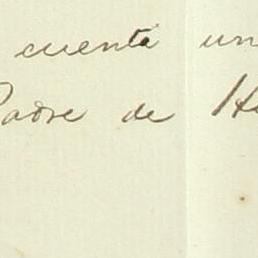 cuenta un
Padre de H